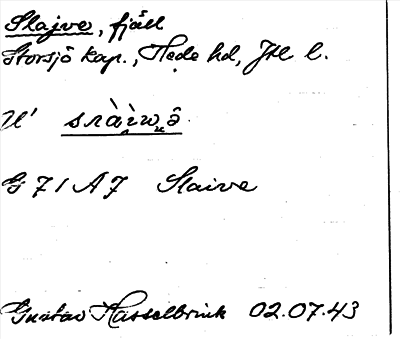 Slajve, fjäll
Storsjö kap., Hede hd, Jtl l.
U'
G 71 A7 Slaive
Gustav Hasselbrink 02.07.43